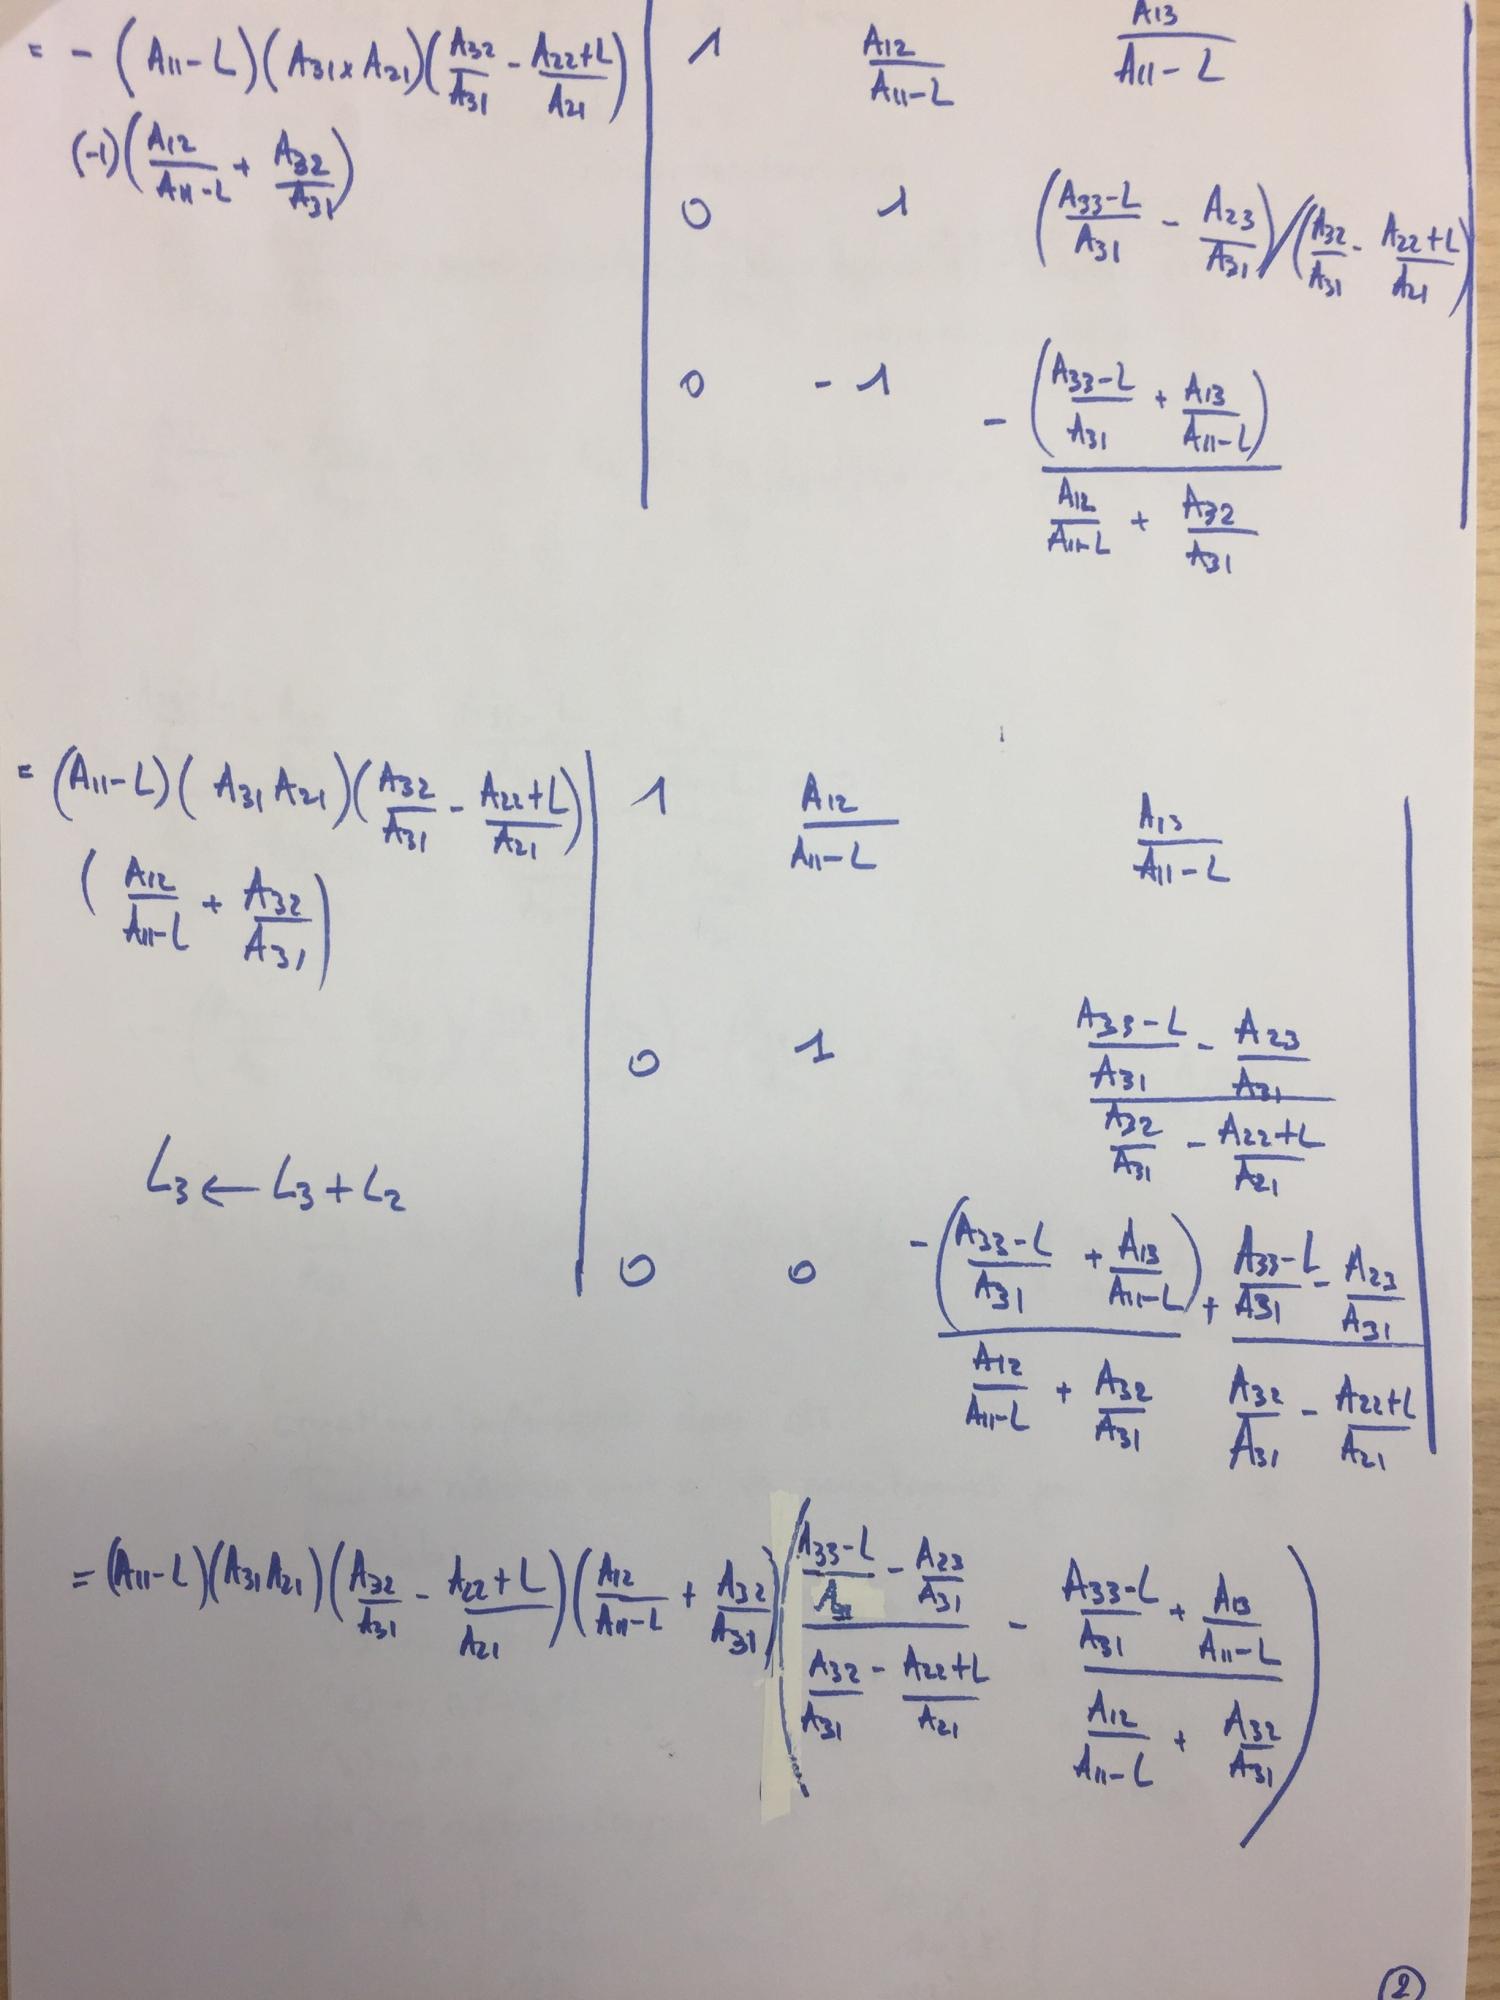 = - (A11-L)(A31xA21)(A32/A31 - A22+L/A21) | 1 A12/A11-L A13/A11-L |
(-1)(A12/A11-L + A32/A31)
0 1 (A33-L/A31 - A23/A31)/(A32/A31 - A22+L/A21)
0 -1 -(A33-L/A31 + A13/A11-L)
A12/A11-L + A32/A31
= (A11-L)(A31 A21)(A32/A31 - A22+L/A21) | 1 A12/A11-L A13/A11-L |
(A12/A11-L + A32/A31)
0 1 A33-L/A31 - A23/A31
A32/A31 - A22+L/A21
L3 ← L3+L2
0 0 -(A33-L/A31 + A13/A11-L) + A33-L/A31 - A23/A31
A12/A11-L + A32/A31 A32/A31 - A22+L/A21
= (A11-L)(A31A21)(A32/A31 - A22+L/A21)(A12/A11-L + A32/A31)(A33-L/A31 - A23/A31 - A33-L/A31 + A13/A11-L)
A32/A31 - A22+L/A21 A12/A11-L + A32/A31
2